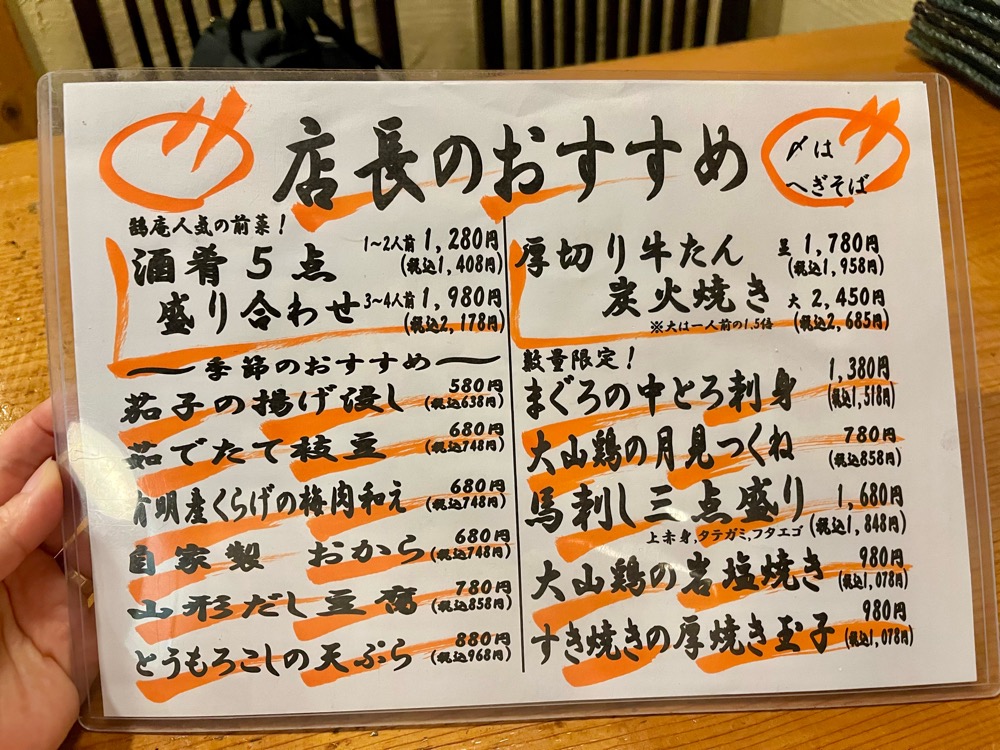 店長のおすすめ
〆は
へぎそば
鶴庵人気の前菜！
酒肴5点
盛り合わせ
1〜2人前 1,280円
(税込1,408円)
3〜4人前 1,980円
(税込2,178円)
季節のおすすめ
茄子の揚げ浸し 580円
(税込638円)
茹でたて枝豆 680円
(税込748円)
有明産くらげの梅肉和え 680円
(税込748円)
自家製 おから 680円
(税込748円)
山形だし豆腐 780円
(税込858円)
とうもろこしの天ぷら 880円
(税込968円)
厚切り牛たん
炭火焼き
1,780円
(税込1,958円)
大 2,450円
(税込2,685円)
※大は一人前の1.5倍
数量限定！
まぐろの中とろ刺身 1,380円
(税込1,518円)
大山鶏の月見つくね 780円
(税込858円)
馬刺し三点盛り 1,680円
(税込1,848円)
上赤身,タテガミ,フタエゴ
大山鶏の岩塩焼き 980円
(税込1,078円)
すき焼きの厚焼き玉子 980円
(税込1,078円)